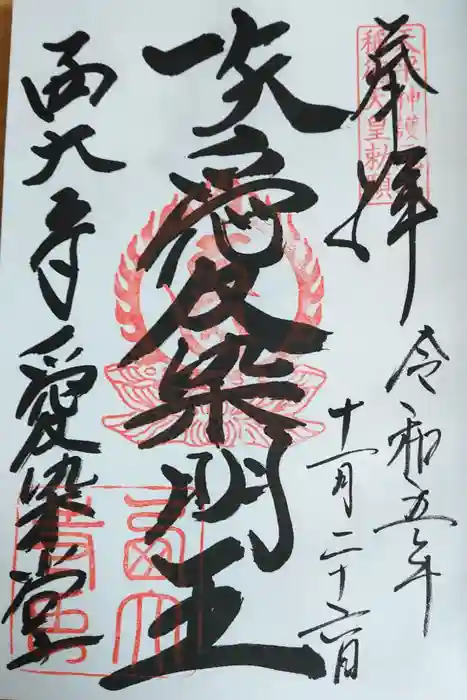 奉拝
令和五年
十一月二十六日
愛染明王
西大寺愛染堂
称徳天皇勅願